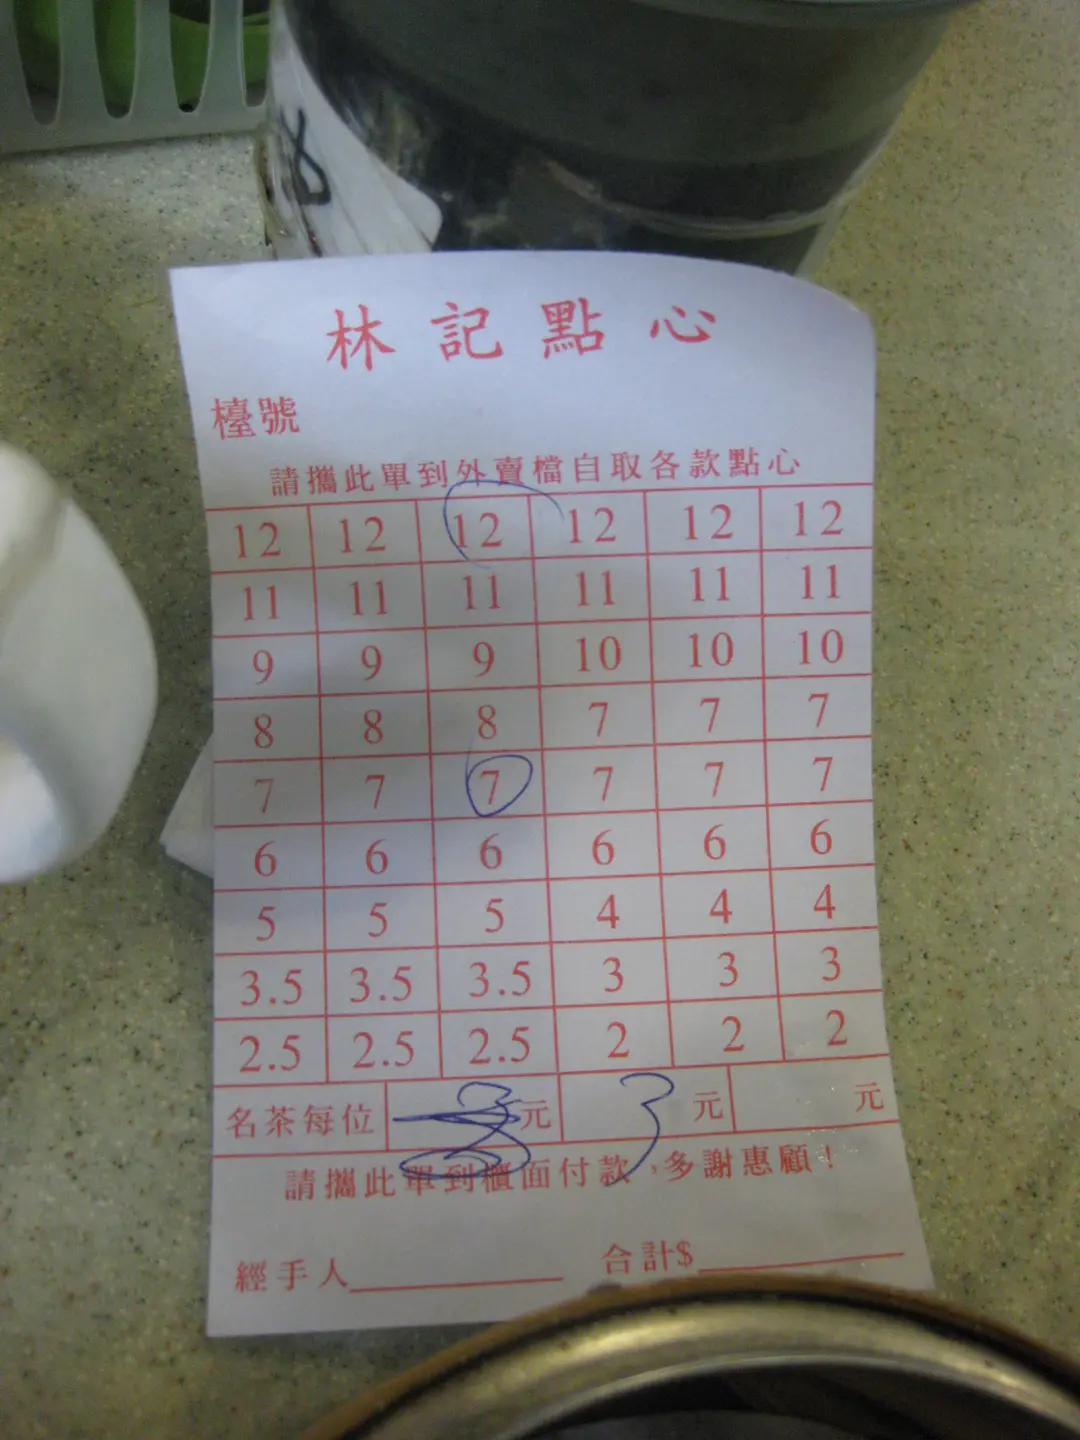 8
林記點心
檯號
請攜此單到外賣檔自取各款點心
12 12 12 12 12 12
11 11 11 11 11 11
9 9 9 10 10 10
8 8 8 7 7 7
7 7 7 7 7 7
6 6 6 6 6 6
5 5 5 4 4 4
3.5 3.5 3.5 3 3 3
2.5 2.5 2.5 2 2 2
名茶每位 元 3 元 元
請攜此單到櫃面付款,多謝惠顧!
經手人 合計$